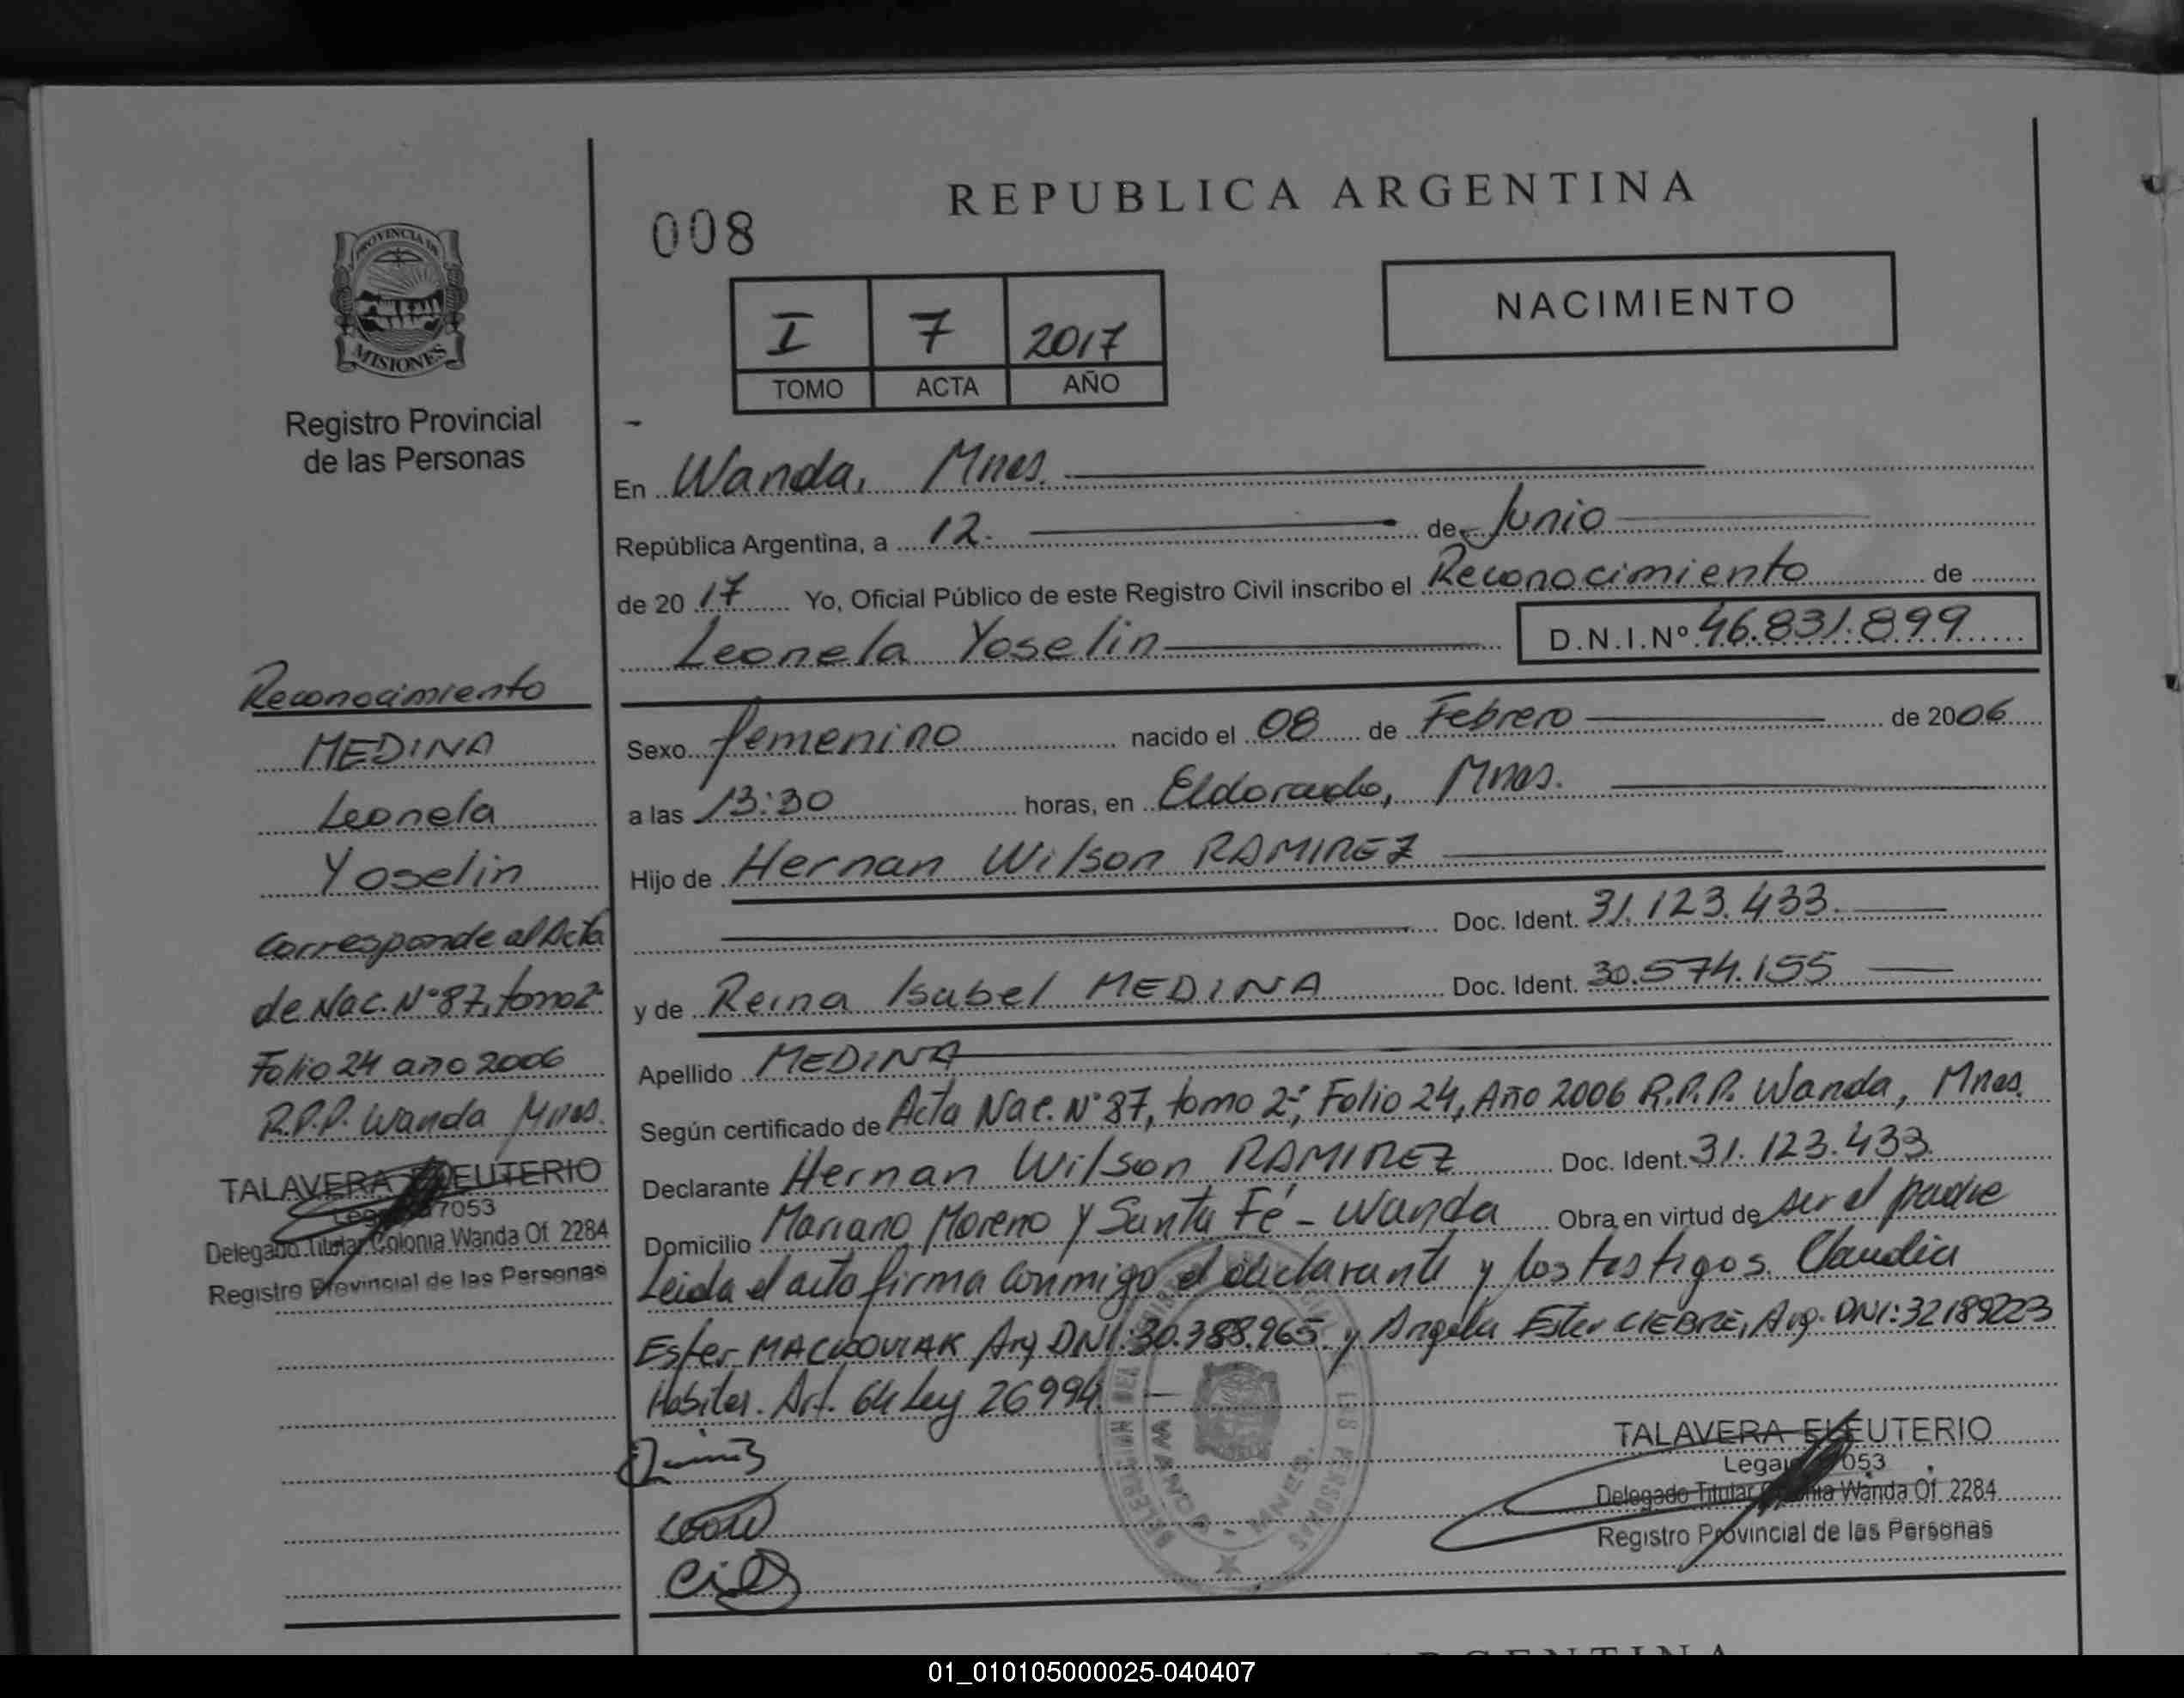 REPUBLICA ARGENTINA
008
NACIMIENTO
I 7 2017
TOMO ACTA AÑO
PROVINCIA DE
MISIONES
Registro Provincial
de las Personas
En Wanda, Mnes.
República Argentina, a 12. de Junio
de 2017 Yo, Oficial Público de este Registro Civil inscribo el Reconocimiento de
Leonela Yoselin D.N.I.Nº 46.831.899
Sexo femenino nacido el 08 de Febrero de 2006
a las 13:30 horas, en Eldorado, Mnes.
Hijo de Hernan Wilson RAMIREZ
Doc. Ident. 31.123.433.
y de Reina Isabel MEDINA Doc. Ident. 30.574.155
Apellido MEDINA
Según certificado de Acta Nac. N°87, tomo 2º, Folio 24, Año 2006 R.P.P. Wanda, Mnes.
Declarante Hernan Wilson RAMIREZ Doc. Ident. 31.123.433.
Domicilio Mariano Moreno y Santa Fé - Wanda Obra en virtud de ser el padre
Leida el acto firma conmigo el declarante y los testigos Claudia
Ester MACKOVIAK Arg DNI:30.388.965 y Angela Ester CIEBRE, Arg. DNI:32189223
Habiles. Art. 64 Ley 26994.
Reconocimiento
MEDINA
Leonela
Yoselin
Corresponde al Acta
de Nac. N°87, tomo 2º
Folio 24 año 2006
R.P.P. Wanda Mnes.
TALAVERA ELEUTERIO
7053
Delegado Titular Colonia Wanda Of. 2284
Registro Provincial de las Personas
TALAVERA ELEUTERIO
Legajo 7053
Delegado Titular Colonia Wanda Of. 2284
Registro Provincial de las Personas
WANDA MNES.
01_010105000025-040407